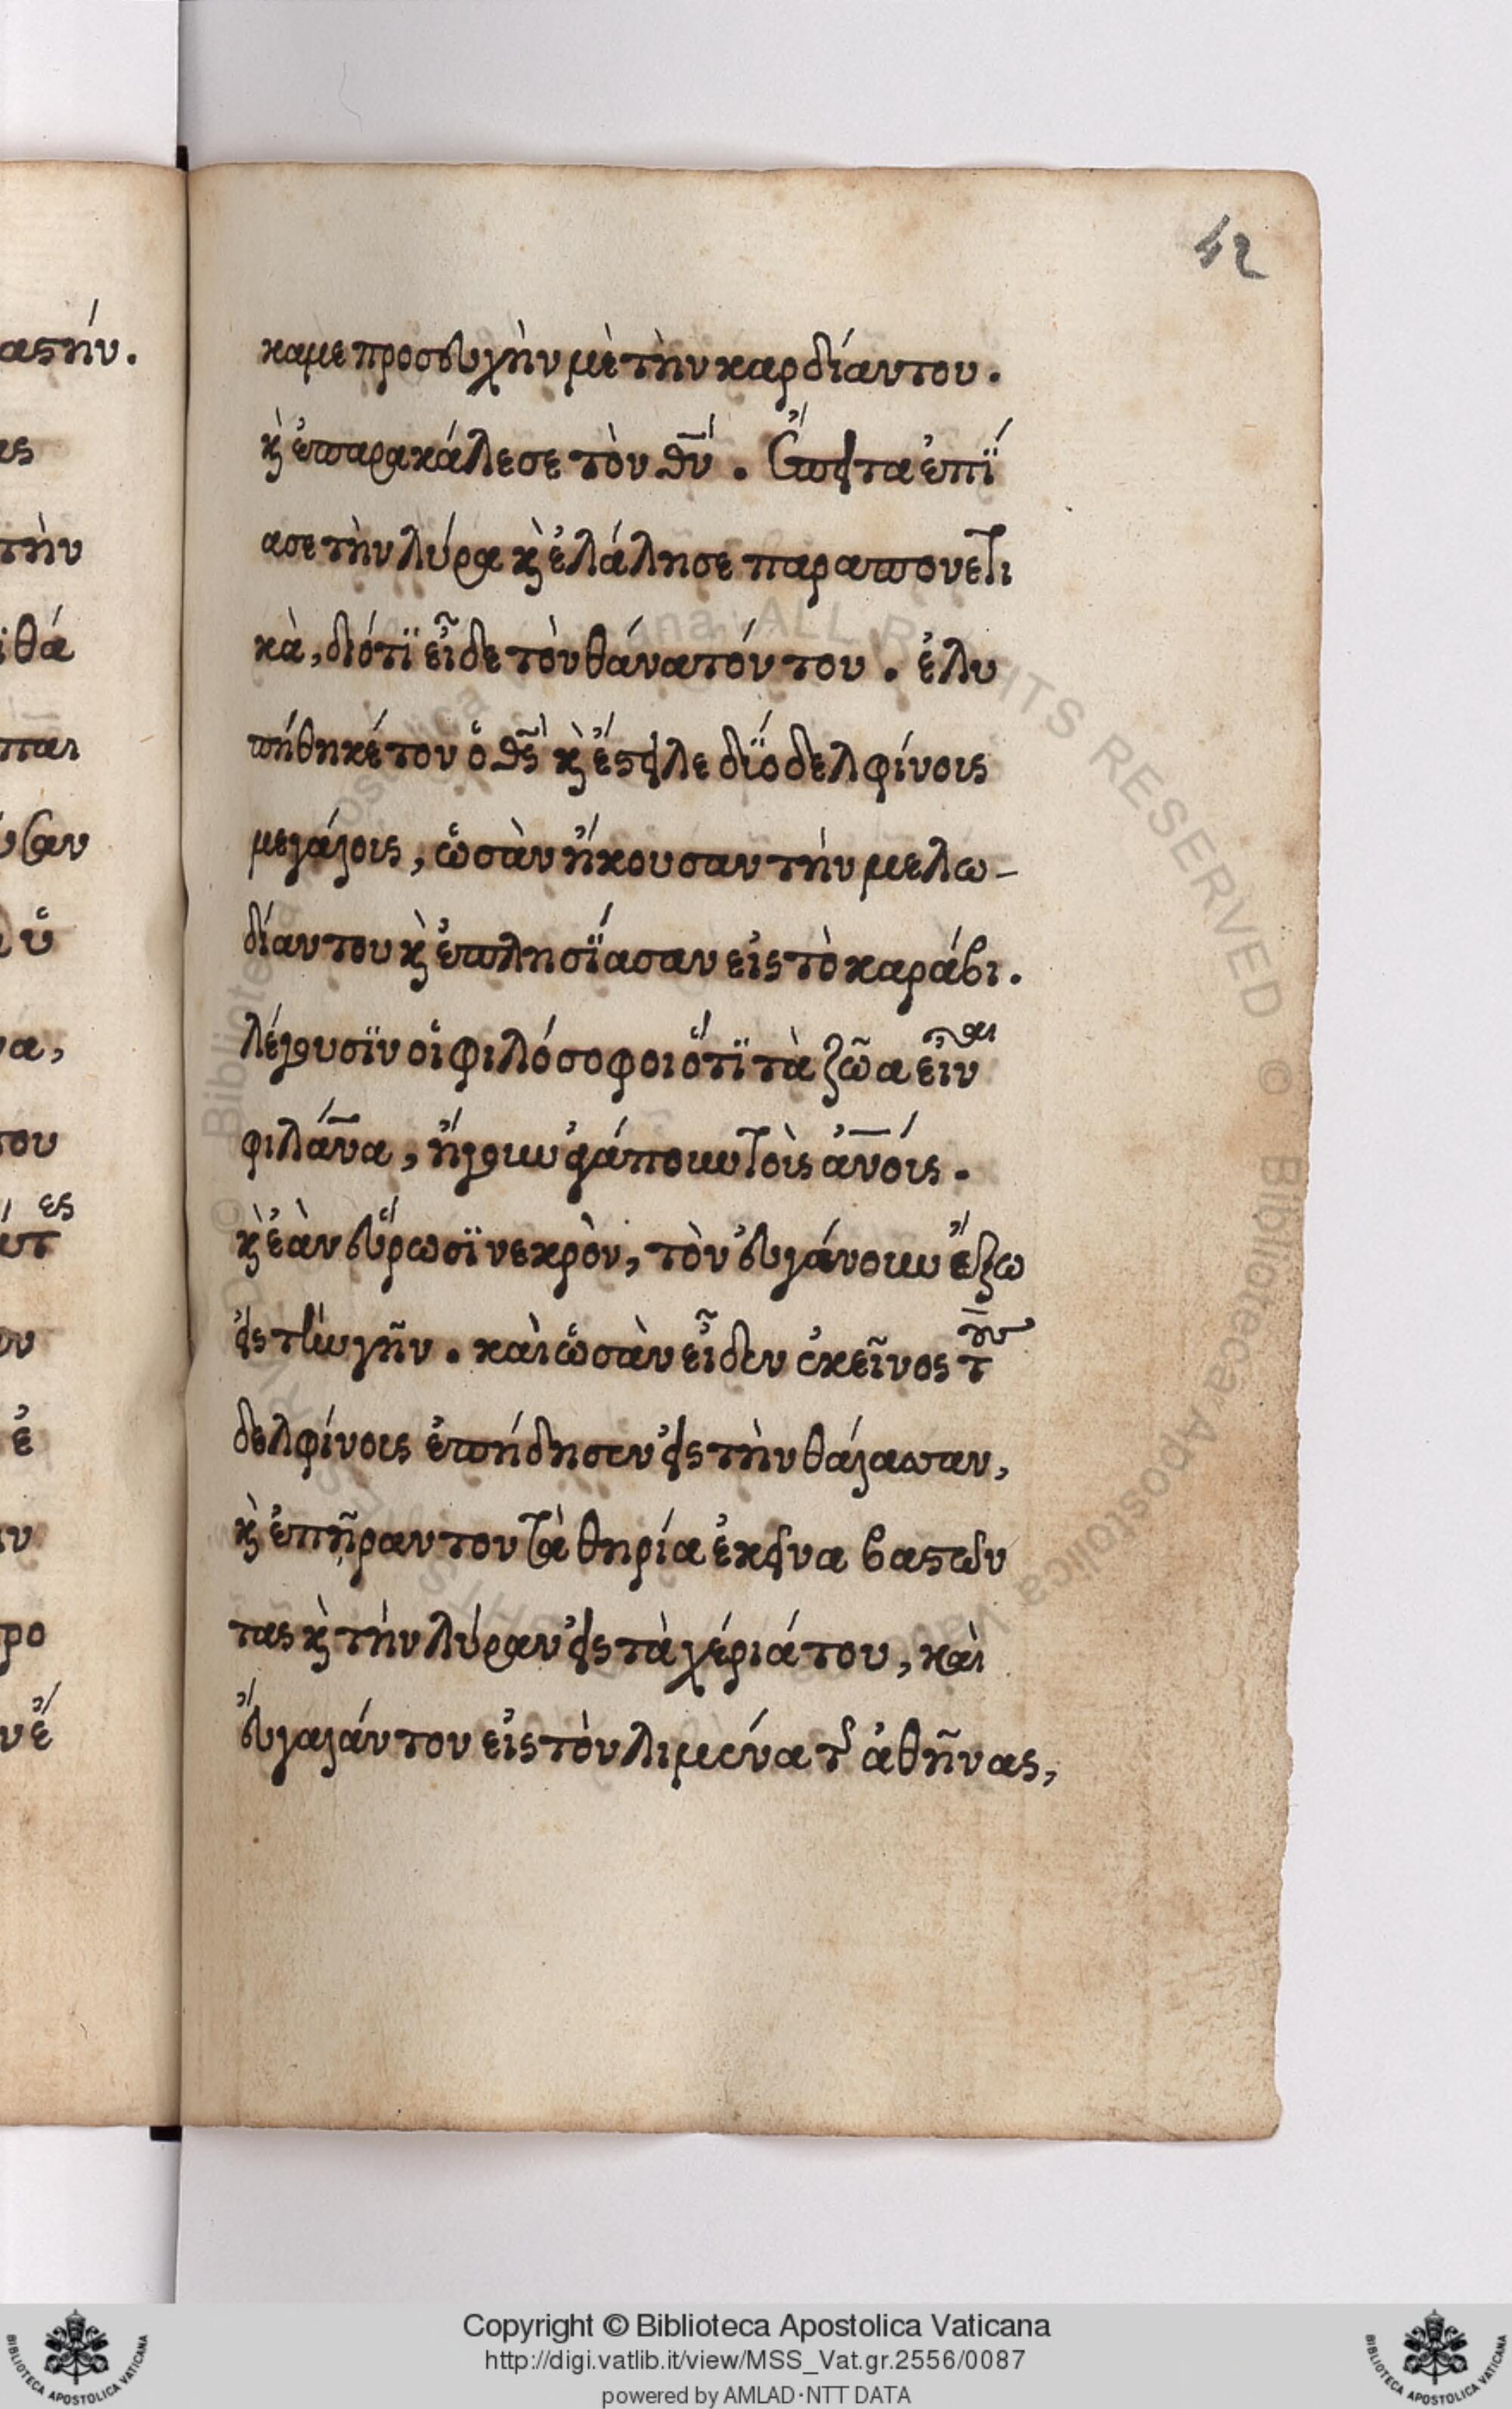 42
καμε προσευχὴν μὲ τὴν καρδίαν του.
κ̀ ἐπαρακάλεσε τὸν θν̅. ἔπειτα ἐπΐ
ασε τὴν λύρα κ̀ ἐλάλησε παραπονετι
κὰ, διότϊ εἶδε τὸν θάνατόν του. ἐλυ
πήθηκέ τον ὁ θς̅ κ̀ ἔστειλε δϊό δελφίνοις
μεγάλοις, ὡσὰν ἤκουσαν τὴν μελω-
δίαν του κ̀ ἐπλησϊάσαν εἰς τὸ καράβι.
λέγουσϊν οἱ φιλόσοφοι ὅτϊ τὰ ζῶα εἶναι
φιλάν̅α, ἤγουν ἀγάπουν τοὶς ἀν̅οις.
κ̀ ἐὰν εὕρωσϊ νεκρὸν, τὸν εὐγάνουν ἔξω
εἰς τὴν γῆν. καὶ ὡσὰν εἶδεν ἐκεῖνος τοὺς
δελφίνοις ἐπήδησεν εἰς τὴν θάλασσαν,
κ̀ ἐπῆραν τον τὰ θηρία ἐκεῖνα βαστῶν
τας κ̀ τὴν λύραν εἰς τὰ χέριά του, καὶ
εὐγαλάν τον εἰς τὸν λιμένα τῆς ἀθῆνας,
αστήν.
ας
τὴν
ϊθά
παι
να,
του
ἐ
ρο
νἔ
Copyright © Biblioteca Apostolica Vaticana
http://digi.vatlib.it/view/MSS_Vat.gr.2556/0087
powered by AMLAD·NTT DATA